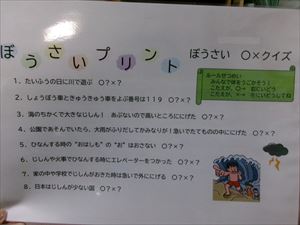 ぼうさいプリント
ぼうさい　〇×クイズ
ルールせつめい
みんなで体をうごかそう！
こたえが、〇→　右にいどう
こたえが、×→　左にいどうしてね
1．たいふうの日に川で遊ぶ　〇？×？
2．しょうぼう車ときゅうきゅう車をよぶ番号は119　〇？×？
3．海のちかくで大きなじしん！　あぶないので高いところににげた　〇？×？
4．公園であそんでいたら、大雨がふりだしてかみなりが！急いでたてものの中ににげた　〇？×？
5．ひなんする時の“おはしも”の“お”はおさない　〇？×？
6．じしんや火事でひなんする時にエレベーターをつかった　〇？×？
7．家の中や学校でじしんがおきた時は急いで外ににげる　〇？×？
8．日本はじしんが少ない国　〇？×？